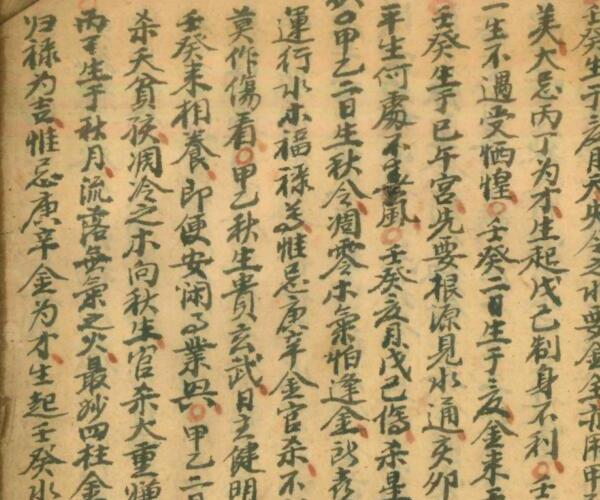 壬癸生于亥月天
美大忌丙丁为才生起戊己制身不利○壬
一生不遇受恓惶○壬癸二日生于亥金来
壬癸生于巳午宫先要根源見水通亥卯
平生何處不風○壬癸亥月戊己傷杀星
○甲乙二日生秋令凋零木氣怕逢金
運行水木福禄惟忌庚辛金官杀不
莫作傷看○甲乙秋生貴玄武日主健明
壬癸来相養即便安闲事業興○甲乙二日
杀夭貧孩凋冷之木向秋生官杀大重
丙丁生于秋月流落無氣之火最妙四柱金
归禄为吉惟忌庚辛金为才生起壬癸水